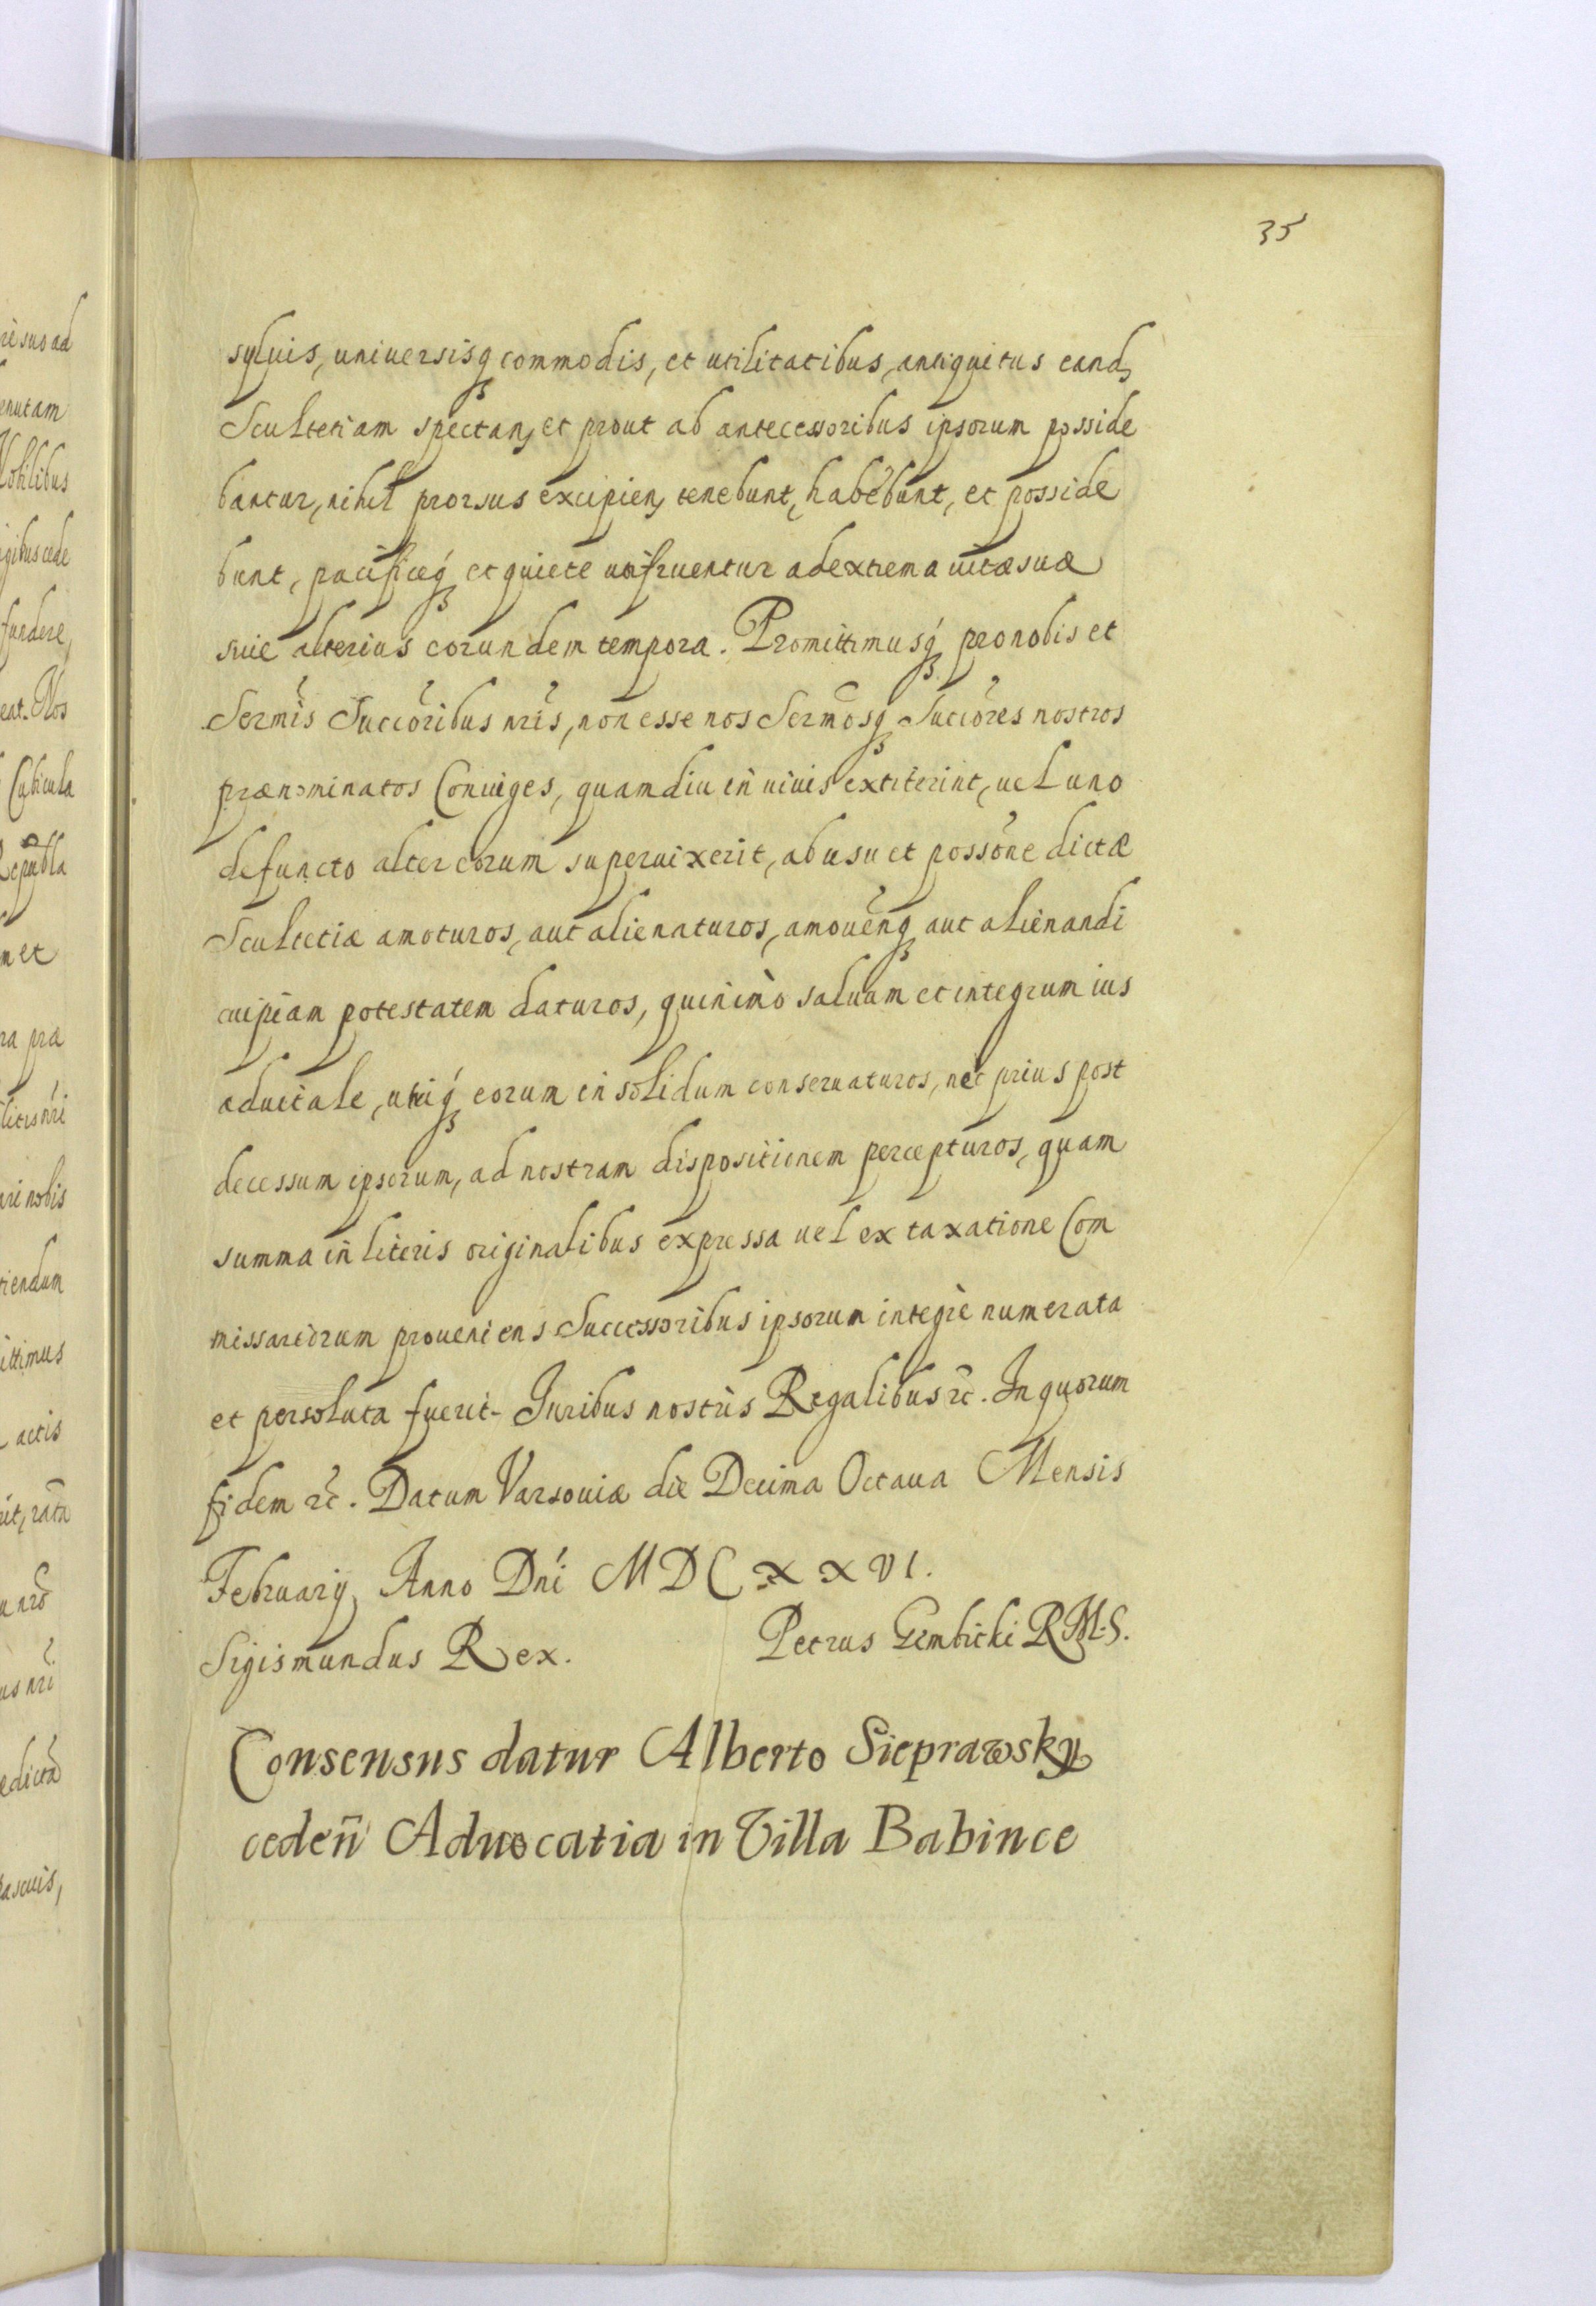 35
syluis, uniuersisq́ꝫ commodis, et utilitatibus, antiquitus eandꝫ
Scultetiam spectanꝫ et prout ab antecessoribus ipsorum posside
bantur, nihil prorsus excipienꝫ tenebunt, habebunt, et posside
bunt, pacificeq́ꝫ et quiete utifruentur ad extrema uitæ suæ
siue alterius eorundem tempora. Promittimusq́ꝫ pro nobis et
Serm̃is Succoribus nr̃is, non esse nos Serm̃osqꝫ Succores nostros
prænominatos Coniuges, quamdiu in uiuis extiterint, uel uno
defuncto alter eorum superuixerit, ab usu et possone dictæ
Scultetiæ amoturos, aut alienaturos, amouenqꝫ aut alienandi
cuipiam potestatem daturos, quinimò saluum et integrum ius
aduitale, utriq́ꝫ eorum in solidum conseruaturos, nec prius post
decessum ipsorum, ad nostram dispositionem percepturos, quam
summa in literis originalibus expressa uel ex taxatione Com
missariorum proueniens Successoribus ipsorum integrè numerata
et persoluta fuerit. Juribus nostris Regalibus ꝛc̃. In quorum
fidem ꝛc̃. Datum Varsouiæ die Decima Octaua Mensis
Februarij, Anno Dnĩ MDCXXVI.
Sigismundus Rex. Petrus Gembicki R.M.S.
Consensus datur Alberto Sieprawsky
cedeñ Aduocatia in Villa Babince
ri suo ad
enutam
Nobilibus
cede
fundere,
eat. Nos
Cubicula
Republa
n et
ra præ
litis nr̃i
nobis
iendum
ittimus
actis
nr̃i
ascuis,